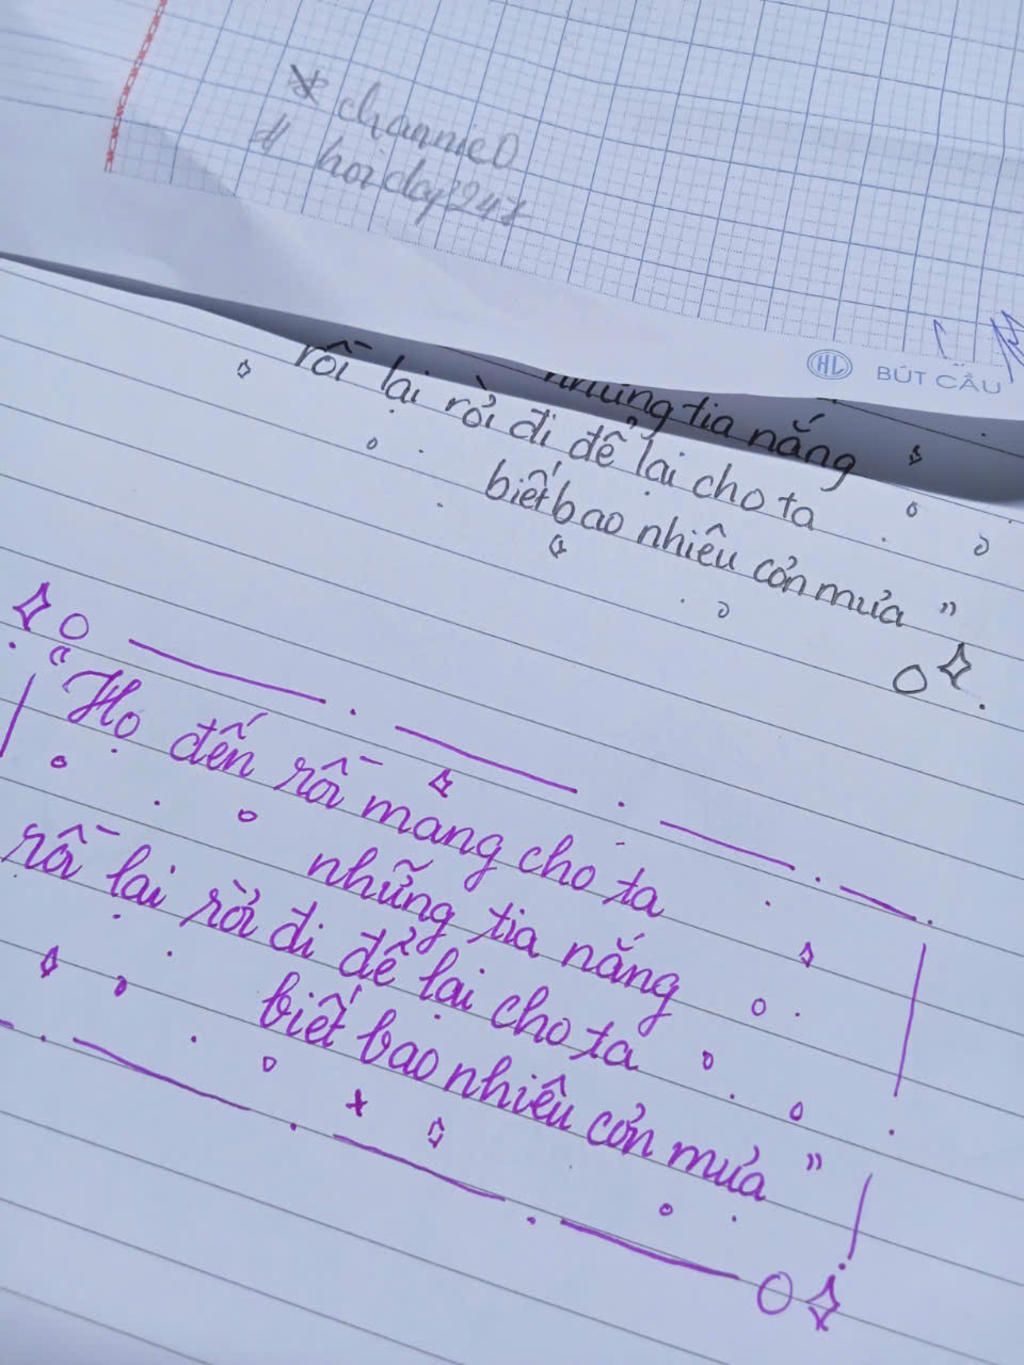 * channieO
# hoiday247
HL BÚT CẦU
những tia nắng
rồi lại rời đi để lại cho ta
biết bao nhiêu cơn mưa ”
“ Họ đến rồi mang cho ta
những tia nắng
rồi lại rời đi để lại cho ta
biết bao nhiêu cơn mưa ”